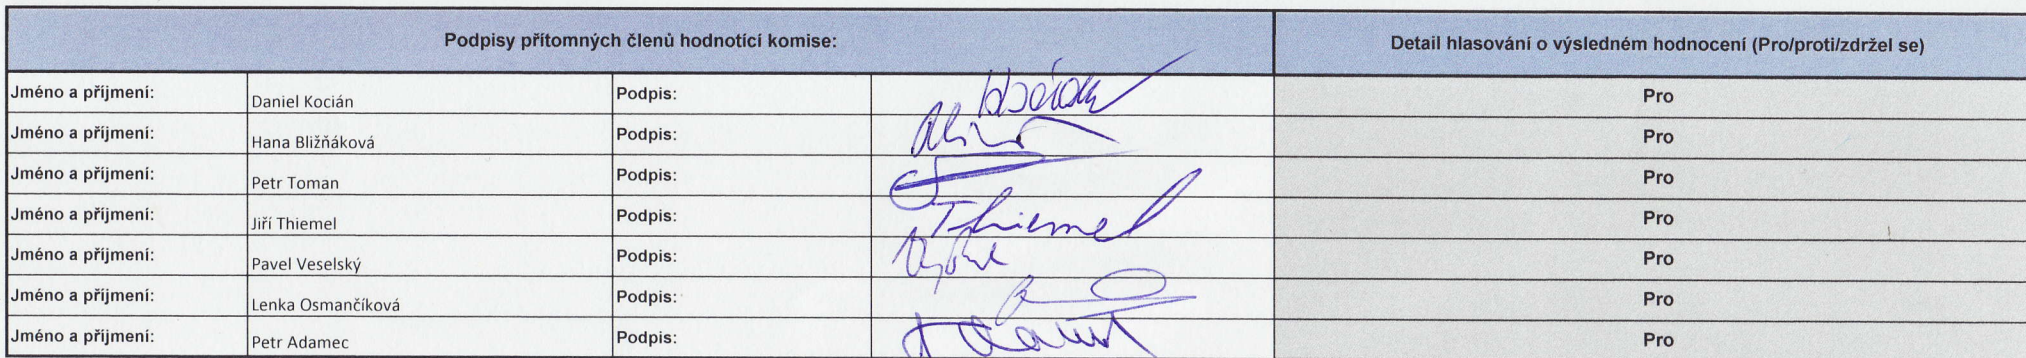 Podpisy přítomných členů hodnotící komise: Detail hlasování o výsledném hodnocení (Pro/proti/zdržel se)
Jméno a příjmení: Daniel Kocián Podpis: Pro
Jméno a příjmení: Hana Bližňáková Podpis: Pro
Jméno a příjmení: Petr Toman Podpis: Pro
Jméno a příjmení: Jiří Thiemel Podpis: Thiemel Pro
Jméno a příjmení: Pavel Veselský Podpis: Pro
Jméno a příjmení: Lenka Osmančíková Podpis: Pro
Jméno a příjmení: Petr Adamec Podpis: Pro